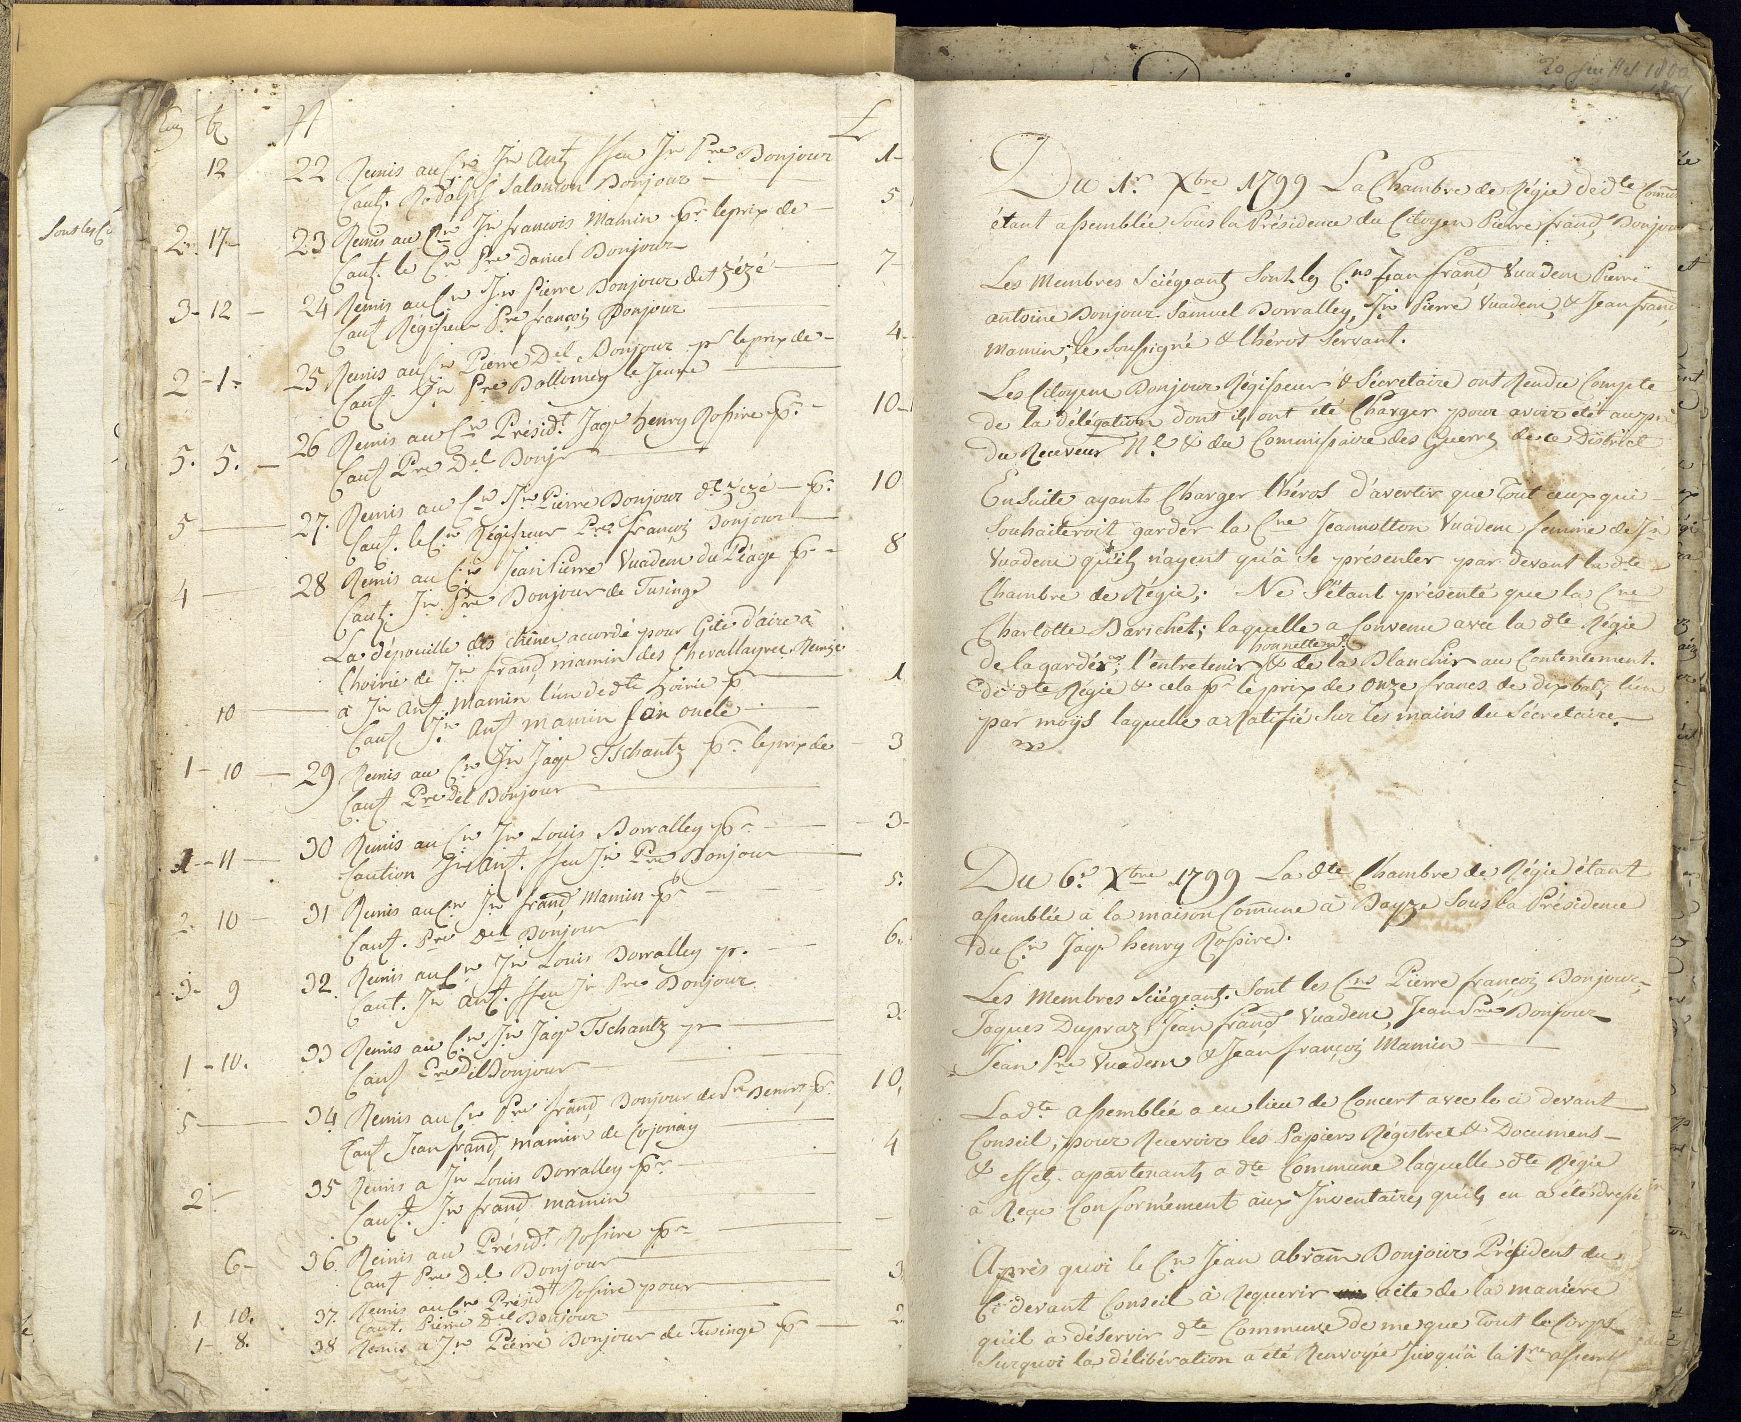 Sont les C
22 Remis au Cn Jn Ant ffeu Jn Pre Bonjour 1-
12
Caut. Rodolf Salomon Bonjour
23 Remis au Cn Jn francois Mamin pr le prix de 5
2. 17-
Caut. le Cn Pre Daniel Bonjour
24 Remis au Cn Jn Pierre Bonjour dit zézé 7-
3- 12 -
Caut Régisseur Pre françois Bonjour
25 Remis au Cn Pierre Del Bonjour pr le prix de 4-
2 - 1-
Caut. Jn Pre Dallomey le Jeune
26 Remis au Cn Présidt Jaqe henry Rossire pr 10-
5. 5. -
Caut Pre Del Bonjr
27. Remis au Cn Jn Pierre Bonjour dt zézé pr 10
5
Caut. le Cn Régisseur Pre françois Bonjour
28 Remis au Cn Jean Pierre Vuadens du Péage pr 8
4
Caut. Jn Pre Bonjour de Tusinge
La dépouille des chênes acordé pour Gite d'aire à
l'hoirie de Jn frands mamin des Chevallayres Remise
à Jn Ant Mamin l'un de dte hoirie pr 1
10
Caut Jn Ant mamin son oncle
29 Remis au Cn Jn Jaqe Tschantz pr le prix de 3
1 - 10
Caut Pre Del Bonjour
30 Remis au Cn Jn Louis Dorralley pr 3-
1 - 11
Caution Jn Ant. ffeu Jn Pre Bonjour
31 Remis au Cn Jn frand Mamin pr 5.
2. 10
Caut. Pre Del Bonjour
32. Remis au Cn Jn Louis Dorralley pr. 6.
3- 9
Caut. Jn Ant. ffeu Jn Pre Bonjour
33 Remis au Cn Jn Jaqe Tschantz pr 3.
1 - 10.
Caut Pre Del Bonjour
34 Remis au Cn Pre frand Bonjour de pr 10,
5
Caut Jean frand mamin de Cojonay
35 Remis a Jn Louis Dorralley pr 4
2
Caut. Jn frand mamin
36. Remis au Présidt Rossire pr
6-
Caut Pre Del Bonjour
37. Remis au Cn Présidt Rossire pour 3
1 10.
Caut. Pierre Del Bonjour
38 Remis a Jn Pierre Bonjour de Tusinge pr 2
1- 8.
20 juillet 1800
Du 1r Xbre 1799 La Chambre de Régie de dte Comune
étant assemblée sous la Présidence du Citoyen Pierre frand Bonjour
Les Membres Sciégeants Sont les Cns Jean frand Vuadens Pierre
antoine Bonjour Samuel Dorralley, Jn Pierre Vuadens, & Jean frand
Mamin, le Soussigné & l'hérot Servant.
Les Citoyens Bonjour Régisseur & Secretaire ont Rendu Compte
de la délégation dont ils ont été Charger pour avoir été aupr
du Receveur Nl & du Commissaire des Guerres de ce District
Ensuite ayant Charger l'héros d'avertir que Tout ceux qui
Souhaiteroit garder la Cne Jeannotton Vuadens femme de Jn
Vuadens qu'ils n'ayent qu'à se présenter par devant la dte
Chambre de Régie; Ne s'étant présenté que la Cne
Charlotte Barichet; laquelle a Convenu avec la dte Régie
de la garder, l'entretenir honnettemt & de la Blanchir au Contentement.
de dte Régie & cela pr le prix de Onze francs de dix batz l'un
par mois laquelle a Ratifié sur les mains du Sécretaire.
Du 6e Xbre 1799 La dte Chambre de Régie étant
assemblée à la maison Commune à Sous la Présidence
du Cn Jaqe henry Rossire.
Les Membres Sciégeants. Sont les Cns Pierre françois Bonjour,
Jaques Dupraz, Jean frand Vuadens, Jean Pre Bonjour
Jean Pre Vuadens & Jean françois Mamin
La dte assemblée a eu lieu de Concert avec le ci devant
Conseil, pour Recevoir les Papiers Régistres & Documens
& effets. apartenants a dte Commune laquelle dte Régie
à Reçu Conformément aux Inventaires, qu'ils en a été dressé
Après quoi le Cn Jean abram Bonjour Président du
Ci devant Conseil à Requerir acte de la manière
qu'il à déservir dte Commune de me que Tout le Corps
Surquoi la délibération a été Renvoyée Jusqu'à la 1re assemb